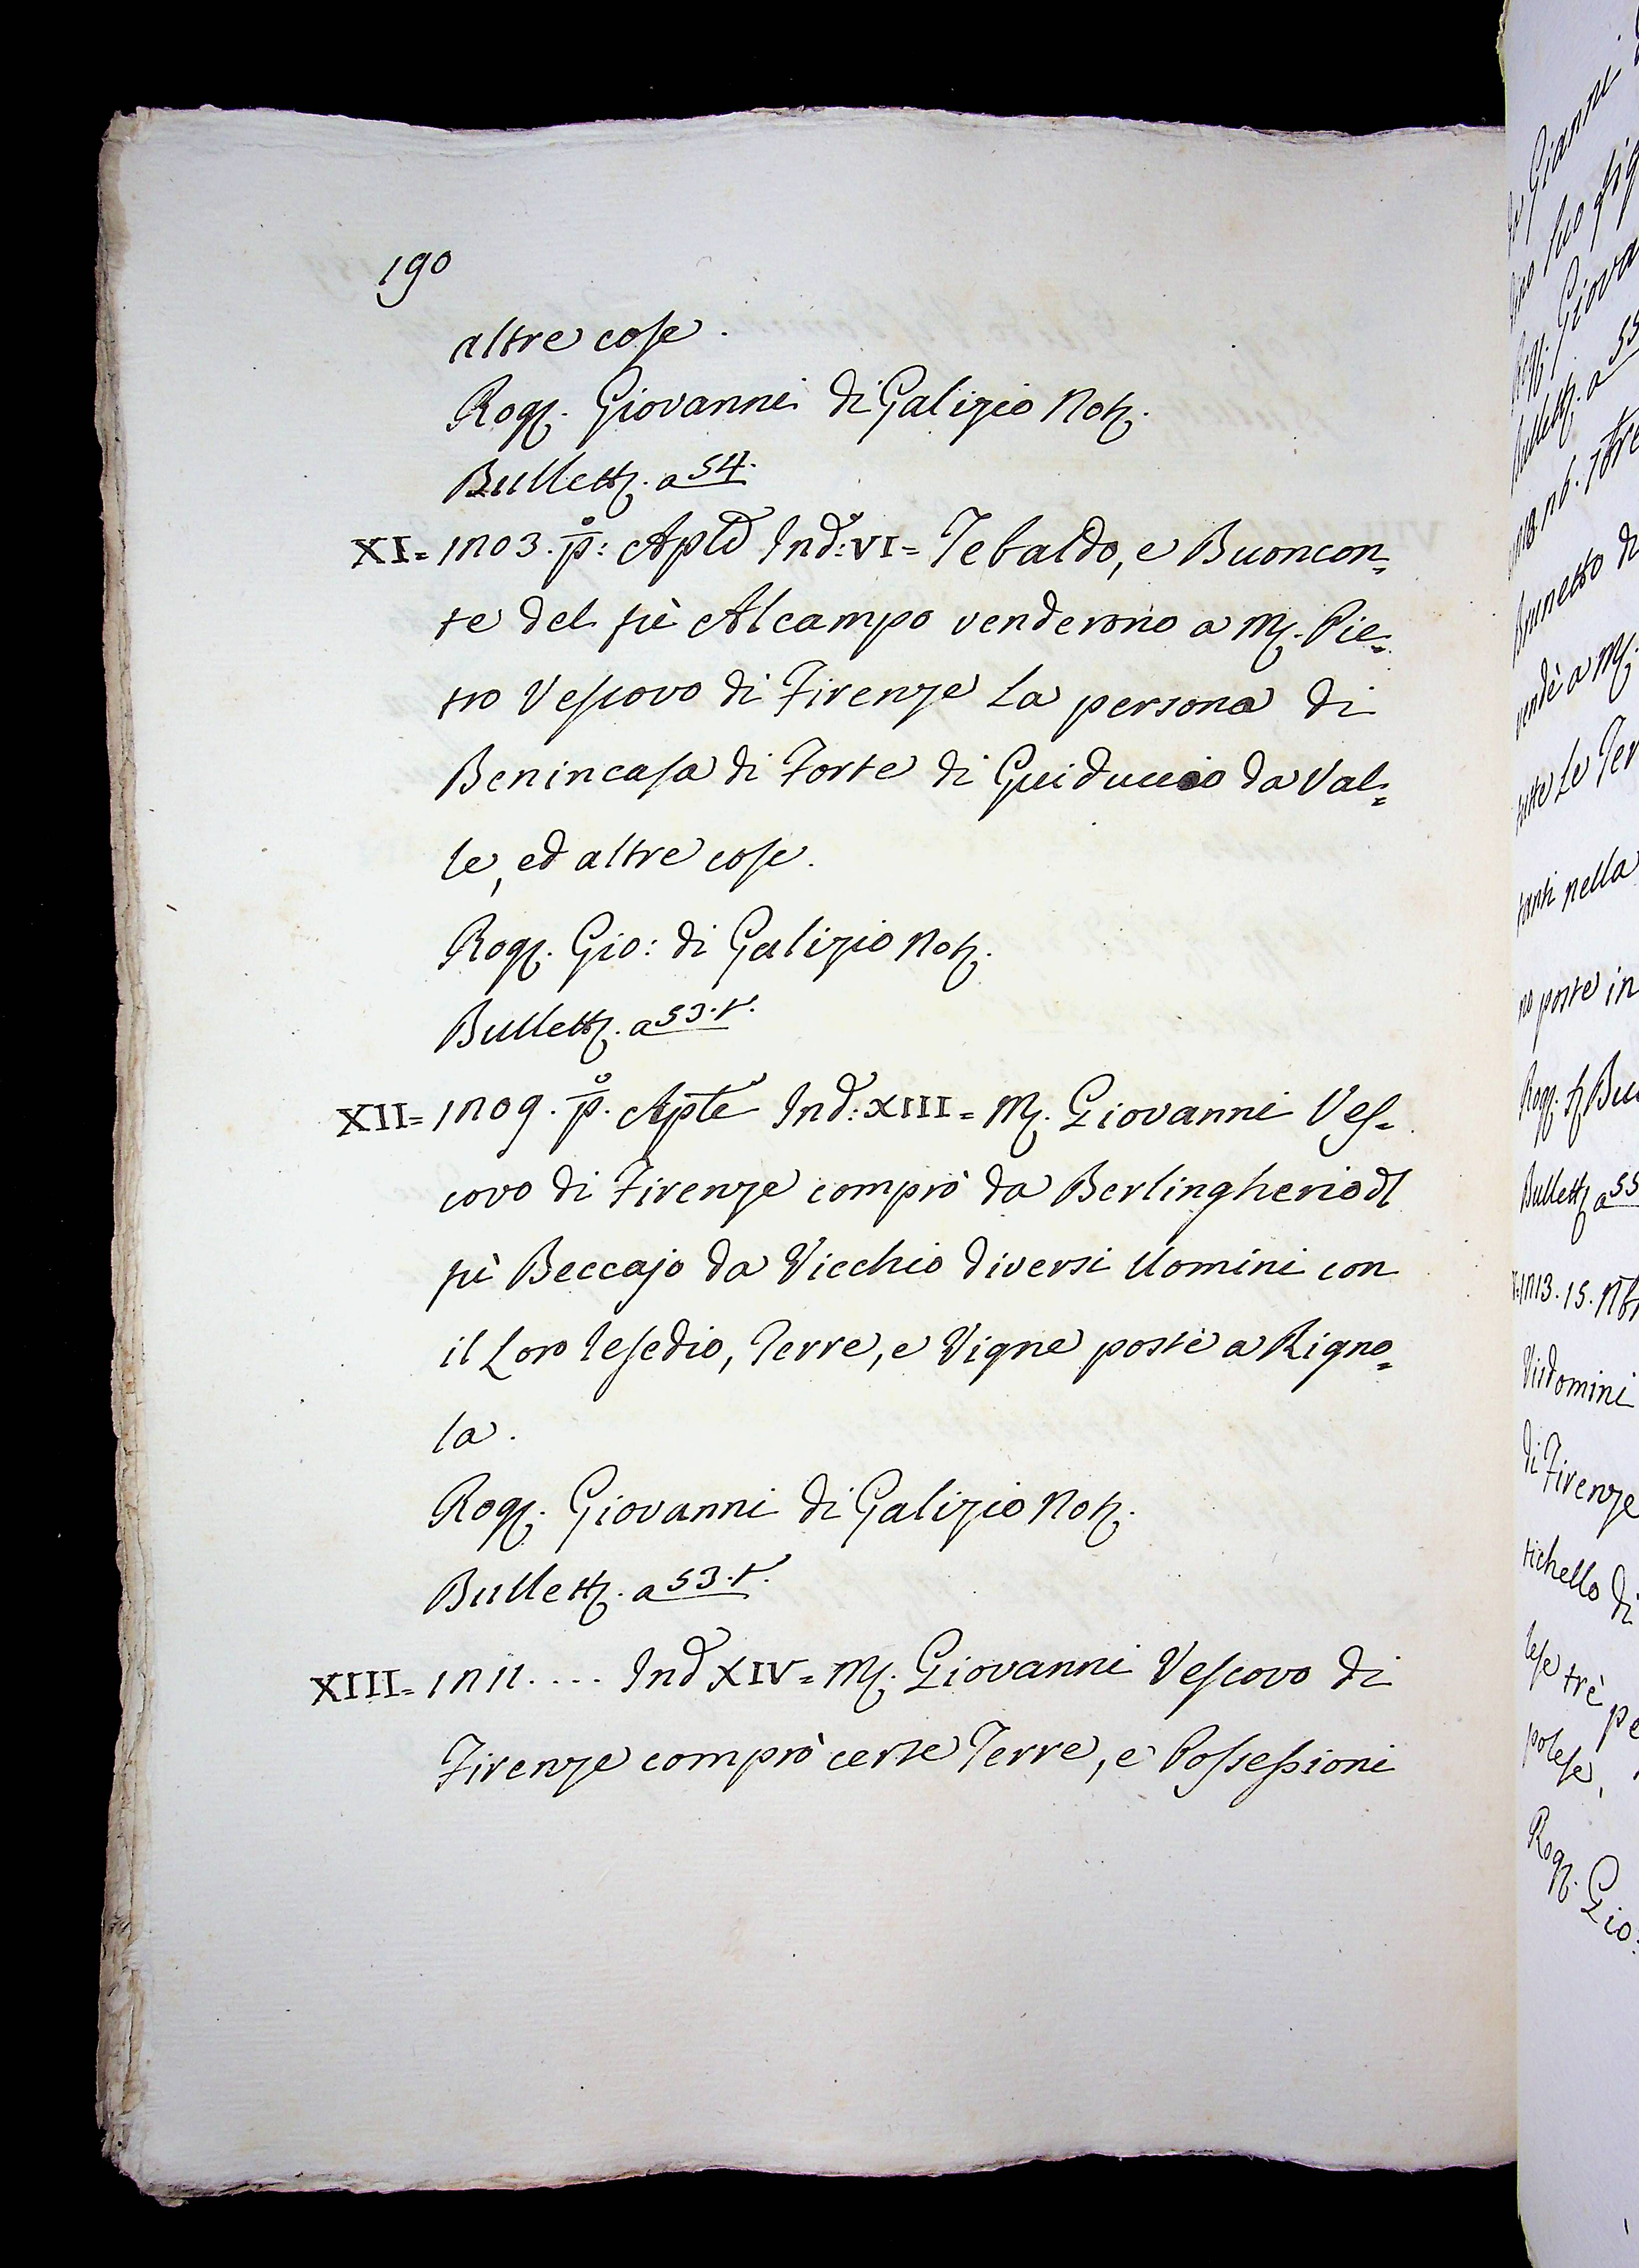 190
altre cose.
Rog. Giovanni di Galizio Not.
Bullett. a 54.
XI= 1203. p.º: Aple Ind: VI= Tebaldo, e Buoncon=
te del fù Alcampo venderono a M. Pie=
tro Vescovo di Firenze La persona di
Benincasa di Forte di Guiduccio da Val=
le, ed altre cose.
Rog. Gio: di Galizio Not.
Bullett. a 53. t.
XII= 1209. p.º Aple Ind: XIII= M. Giovanni Ves=
covo di Firenze comprò da Berlingherio dl
fù Beccajo da Vicchio diversi Uomini con
il Loro Resedio, Terre, e Vigne poste a Rigno=
la.
Rog. Giovanni di Galizio Not.
Bullett. a 53. t.
XIII= 1211.... Ind XIV= M. Giovanni Vescovo di
Firenze comprò certe Terre, e Possessioni
Gianni
suo fig
Giova
Bullett. a 55
Brunetto di
vendè a M.
tutte Le Ter
tanti nella
no poste in
Bullett. a 55
1213. 15. Nb
Visdomini
di Firenze
tichello di
lese trè pe
polese,
Rog. Gio: